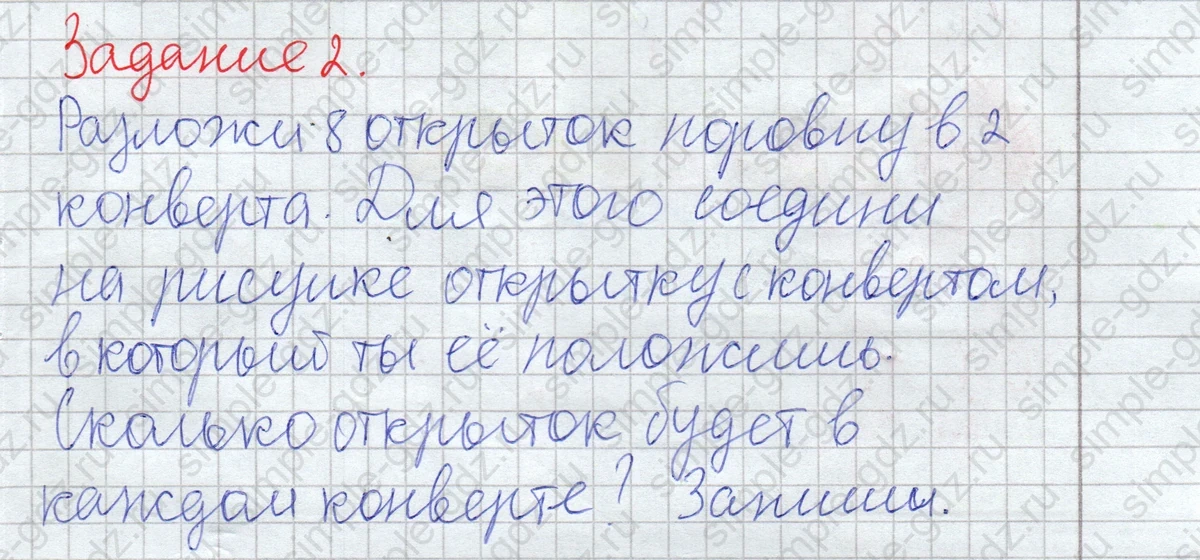 Задание 2.
Разложи 8 открыток поровну в 2
конверта. Для этого соедини
на рисунке открытку с конвертом,
в который ты её положишь.
Сколько открыток будет в
каждом конверте? Запиши.
simple-gdz.ru